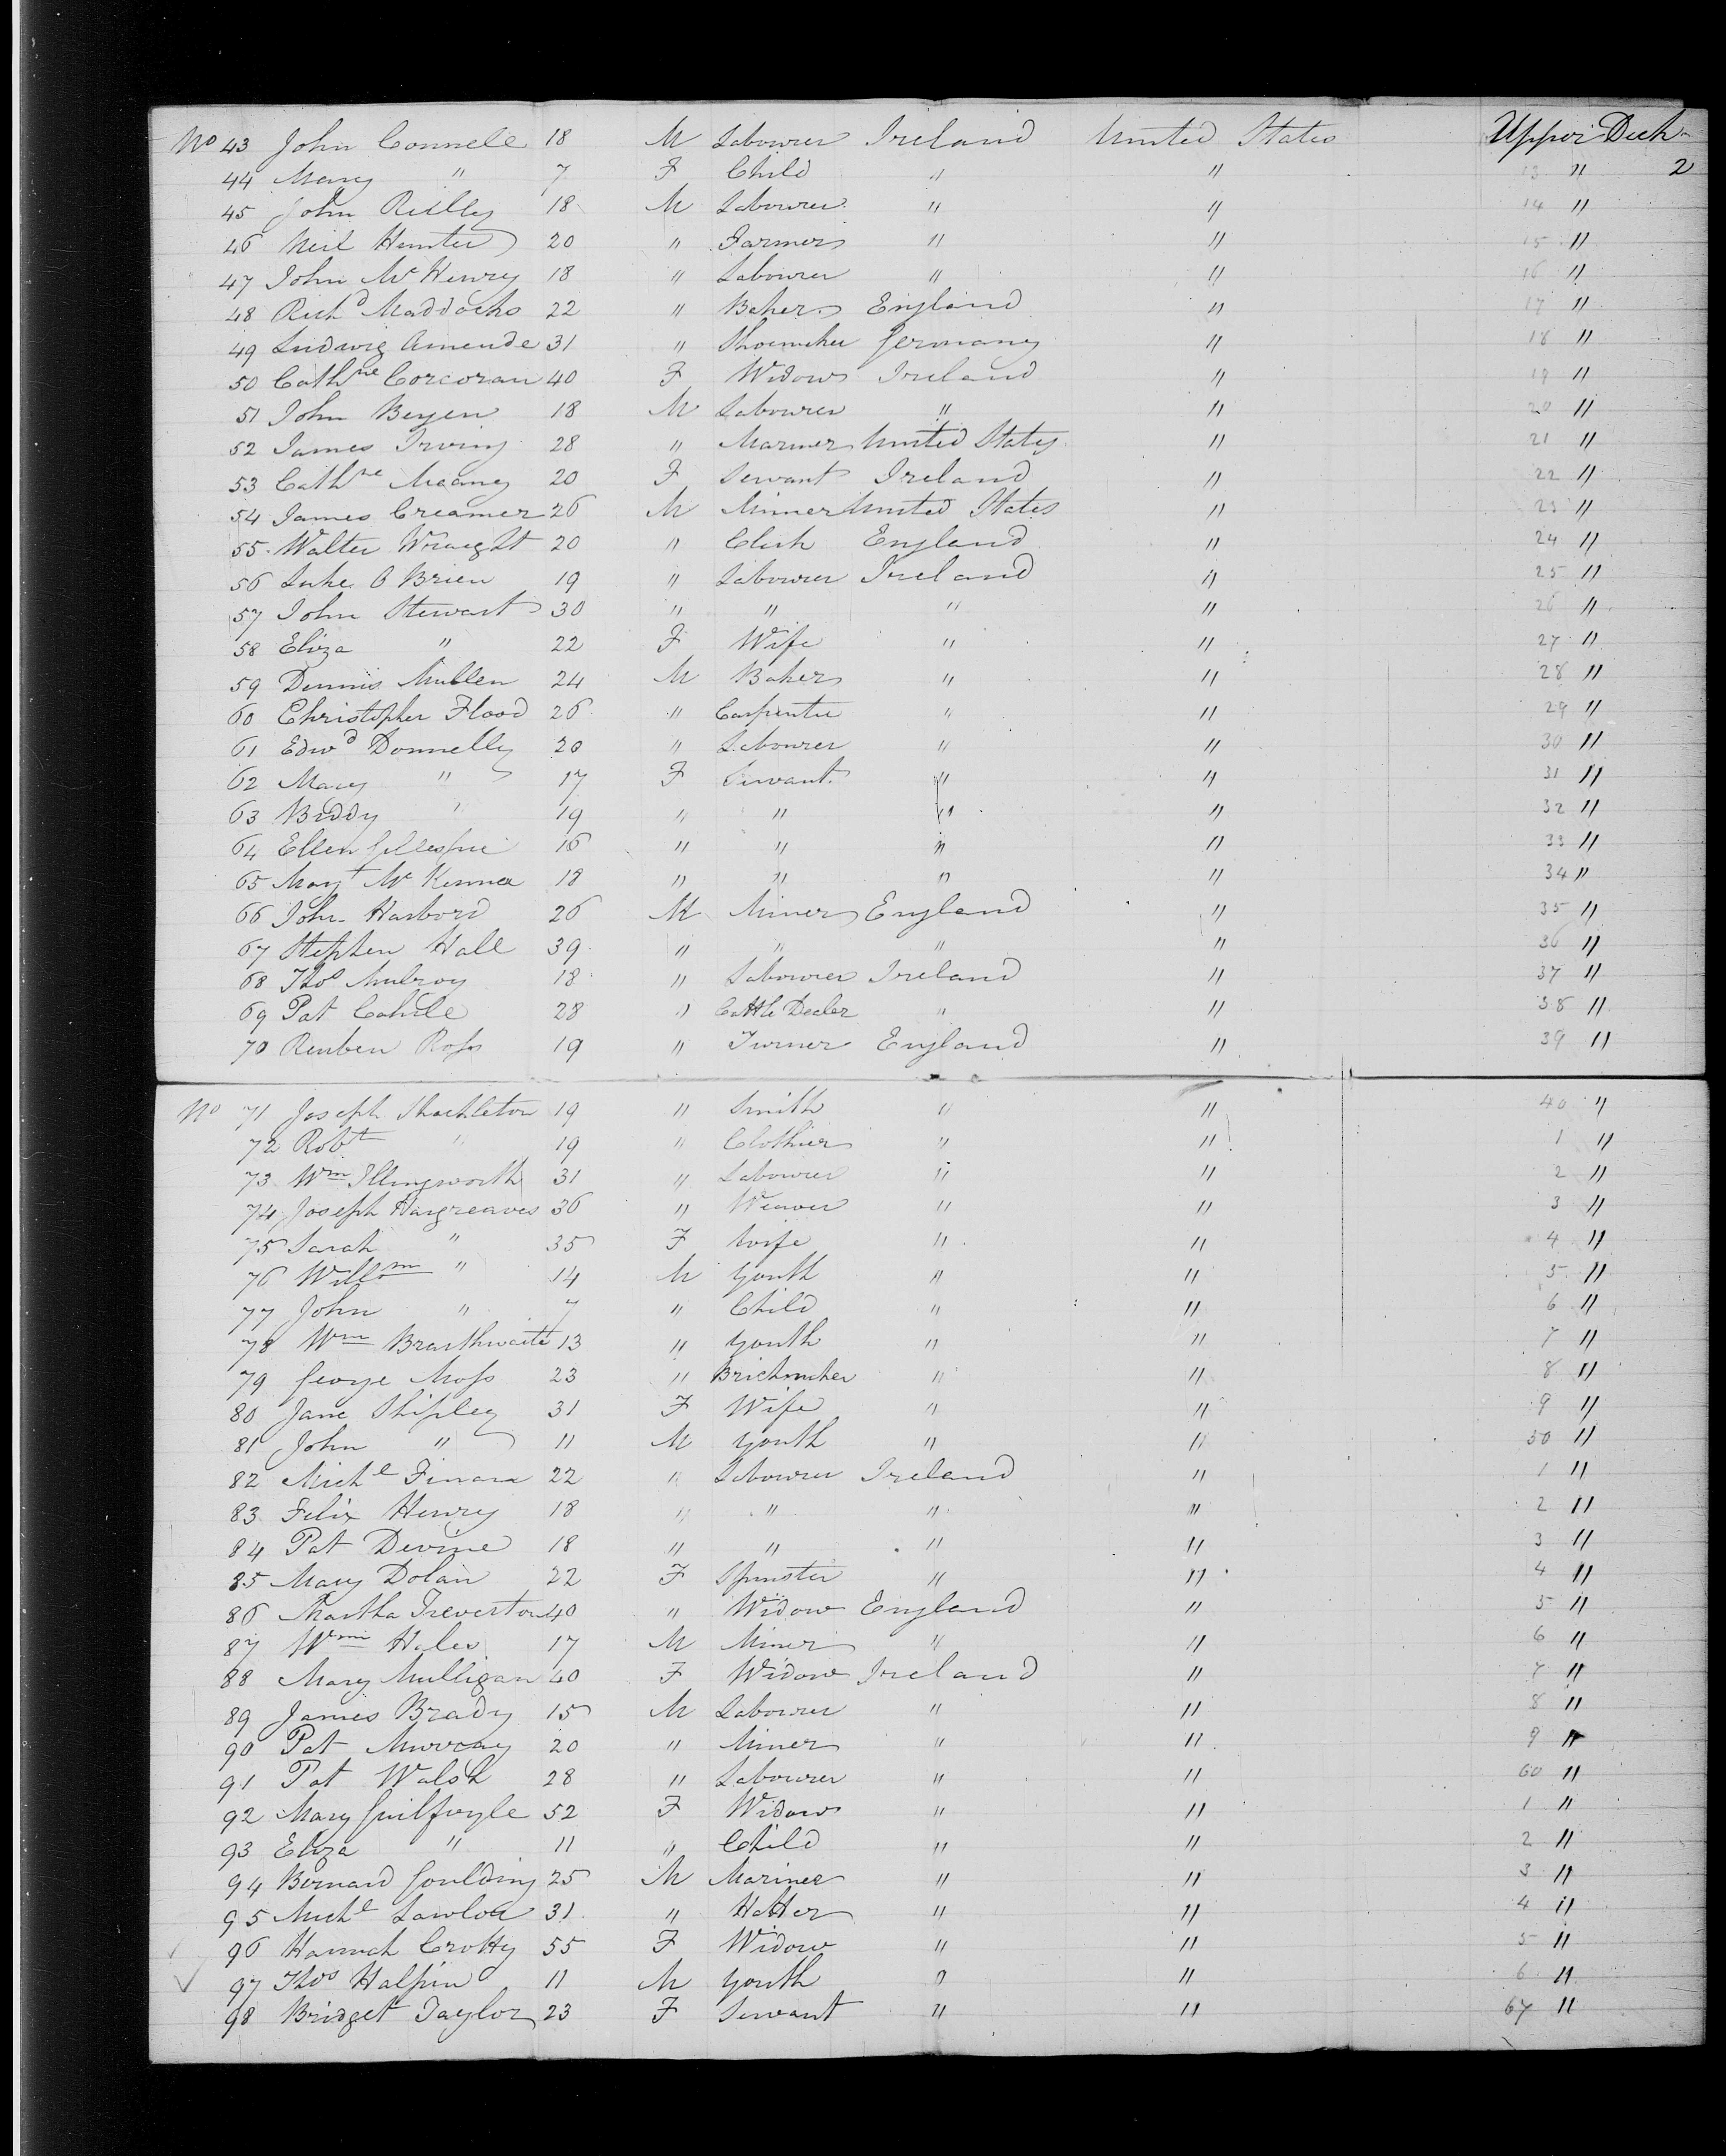 No 43 John Connell 18 M Labourer Ireland United States Upper Deck
44 Mary " 7 F Child " " 13 " 2
45 John Reilly 18 M Labourer " " 14 "
46 Neil Hunter 20 " Farmer " " 15 "
47 John McHenry 18 " Labourer " " 16 "
48 Richd Maddocks 22 " Baker England " 17 "
49 Ludwig Amende 31 " Shoemaker Germany " 18 "
50 Cathne Corcoran 40 F Widow Ireland " 19 "
51 John Beyen 18 M Labourer " " 20 "
52 James Irving 28 " Mariner United States " 21 "
53 Cathne Meaney 20 F Servant Ireland " 22 "
54 James Creamer 26 M Miner United States " 23 "
55 Walter Wraight 20 " Clerk England " 24 "
56 Luke O Brien 19 " Labourer Ireland " 25 "
57 John Stewart 30 " " " " 26 "
58 Eliza " 22 F Wife " " 27 "
59 Dennis Mullen 24 M Baker " " 28 "
60 Christopher Flood 26 " Carpenter " " 29 "
61 Edwd Donnelly 20 " Labourer " " 30 "
62 Mary " 17 F Servant " " 31 "
63 Biddy " 19 " " " " 32 "
64 Ellen Gillespie 16 " " " " 33 "
65 Margt McKenna 18 " " " " 34 "
66 John Harbord 26 M Miner England " 35 "
67 Stephen Hall 39 " " " " 36 "
68 Thos Mulroy 18 " Labourer Ireland " 37 "
69 Pat Cahill 28 " Cattle Dealer " " 38 "
70 Reuben Ross 19 " Turner England " 39 "
No 71 Joseph Shackleton 19 " Smith " " 40 "
72 Robt " 19 " Clothier " " 1 "
73 Wm Illingworth 31 " Labourer " " 2 "
74 Joseph Hargreaves 36 " Weaver " " 3 "
75 Sarah " 35 F Wife " " 4 "
76 Willm " 14 M Youth " " 5 "
77 John " 7 " Child " " 6 "
78 Wm Braithwaite 13 " Youth " " 7 "
79 George Moss 23 " Brickmaker " " 8 "
80 Jane Shipley 31 F Wife " " 9 "
81 John " 11 M Youth " " 50 "
82 Michl Finan 22 " Labourer Ireland " 1 "
83 Felix Henry 18 " " " " 2 "
84 Pat Devine 18 " " " " 3 "
85 Mary Dolan 22 F Spinster " " 4 "
86 Martha Treverton 40 " Widow England " 5 "
87 Wm Hales 17 M Miner " " 6 "
88 Mary Mulligan 40 F Widow Ireland " 7 "
89 James Brady 15 M Labourer " " 8 "
90 Pat Murray 20 " Miner " " 9 "
91 Pat Walsh 28 " Labourer " " 60 "
92 Mary Guilfoyle 52 F Widow " " 1 "
93 Eliza " 11 " Child " " 2 "
94 Bernard Goulding 25 M Mariner " " 3 "
95 Michl Lawlor 31 " Hatter " " 4 "
96 Hannah Crotty 55 F Widow " " 5 "
97 Thos Halpin 11 M Youth " " 6 "
98 Bridget Taylor 23 F Servant " " 67 "